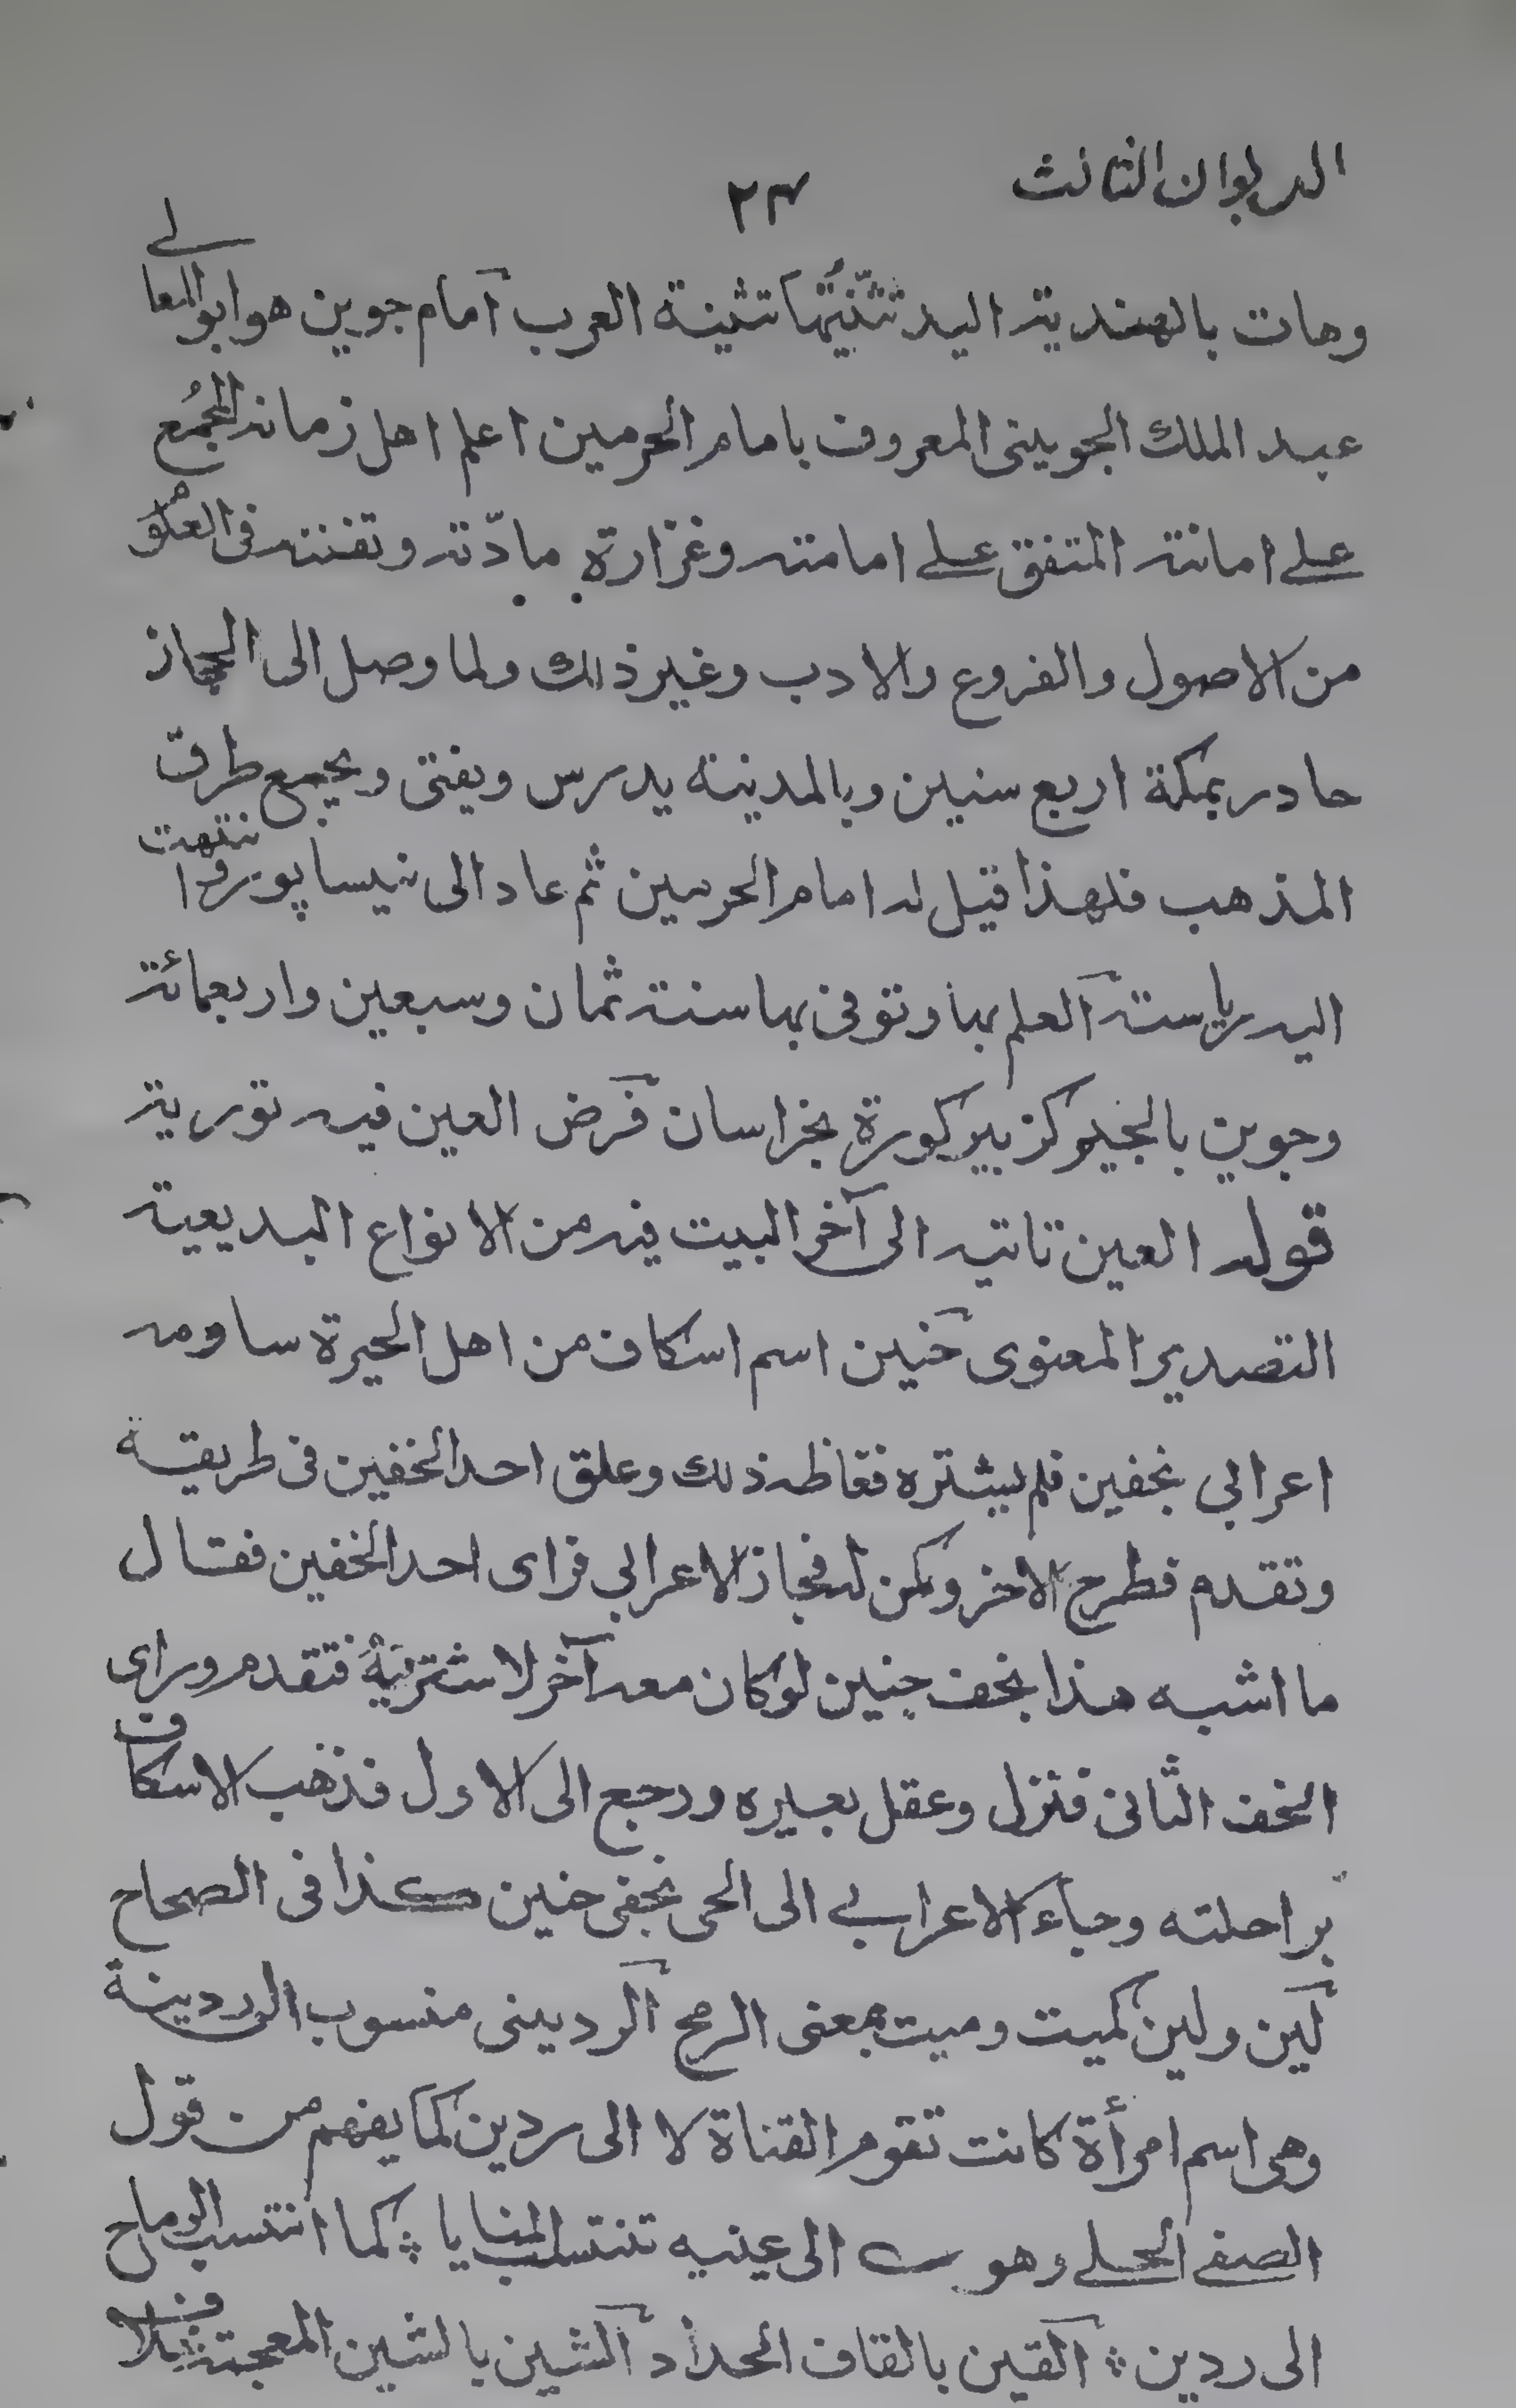 الديوان الثالث
٢٣
وهات بالهندية اليد تثنيتها تثنية العرب امام جوين هو ابو المعالي
عبد الملك الجويني المعروف بامام الحرمين اعلم اهل زمانه المجمُع
على امانته المتفق على امامته وغزارة مادّته وتفننه في العلوم
من الاصول والفروع والادب وغير ذلك ولما وصل الى الحجاز
جاور بمكة اربع سنين وبالمدينة يدرس ويفتى ويجمع طرق
المذهب فلهذا قيل له امام الحرمين ثم عاد الى نيساپور وانتهت
اليه رياسة العلم بها وتوفى بها سنة ثمان وسبعين واربعمائة
وجوين بالجيم كزبير كورة بخراسان فرض العين فيه تورية
قوله العين تاتيه الى آخر البيت فيه من الانواع البديعية
التصدير المعنوى حنين اسم اسكاف من اهل الحيرة ساومه
اعرابي بخفين فلم يشتره فغاظه ذلك وعلق احد الخفين في طريقه
وتقدم فطرح الاخر وكمن له فجاز الاعرابي فراى احد الخفين فقال
ما اشبه هذا بخف حنين لو كان معه آخر لاشتريتُهُ فتقدم وراى
الخف الثانى فنزل وعقل بعيره ورجع الى الاول فذهب الاسكاف
براحلته وجاء الاعرابي الى الحى بخفى حنين كذا فى الصحاح
لين ولين كميت وميت بمعنى الرمح الردينى منسوب الى ردينة
وهى اسم امرأة كانت تقوم القناة لا الى ردين كما يفهم من قول
الصفى الحلي وهو الى عينيه تنتسب المنايا ؞ كما انتسب الرماح
الى ردين ؞ القين بالقاف الحداد الشين بالشين المعجمة خلاف